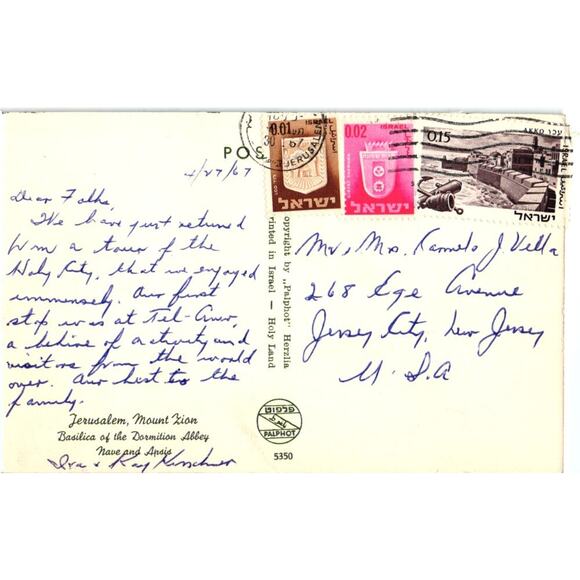 POS
4/27/67
Dear Folks,
We have just returned
from a tour of the
Holy City, that we enjoyed
immensely. Our first
stop was at Tel-Aviv,
a behive of activity and
visitors from the world
over. Our best to the
family.
Jerusalem, Mount Zion
Basilica of the Dormition Abbey
Nave and Apsis
Ira & Ray Kirschner
opyright by „Palphot" Herzlia
rinted in Israel — Holy Land
פלפוט
PALPHOT
5350
0.01
ISRAEL
ישראל
0.02
ISRAEL
ישראל
0.15
AKKO עכו
ISRAEL
ישראל
JERUSALEM
30
67
Mr & Mrs. Karmelo J. Vella
268 Ege Avenue
Jersey City, New Jersey
U.S.A